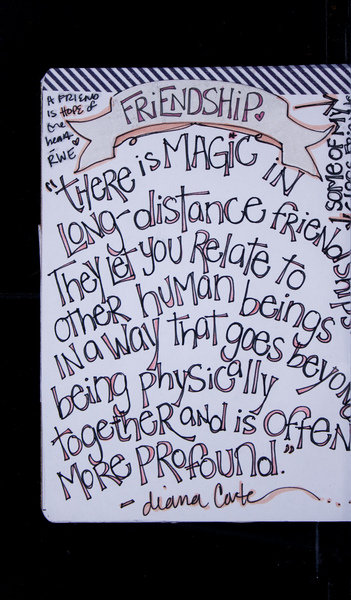 FRIENDSHIP
A FRIEND
IS HOPE of
the
heart
- RWE
SOME OF MY
"THERE is MAGIC IN
LONG-distance FRiENdships.
They LeT you RELate to
other human beings
IN a way that goes beyond
being physically
together and is OFTEN
MORE PROFOUND."
- diana Corte